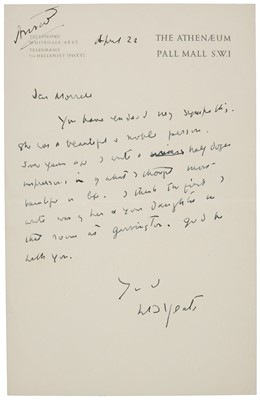 Answd
TELEPHONE
WHITEHALL 4843
TELEGRAMS
HELLENIST (PARL)
April 28
THE ATHENÆUM
PALL MALL S.W.1
Dear Morrell
You have indeed my sympathy.
She was a beautiful & noble person.
Some years ago I wrote a half dozen
impressions of what I thought most
beautiful in life. I think the first I
wrote was of her & your daughter in
that room at Garsington. God
help you.
Yrs
WB Yeats